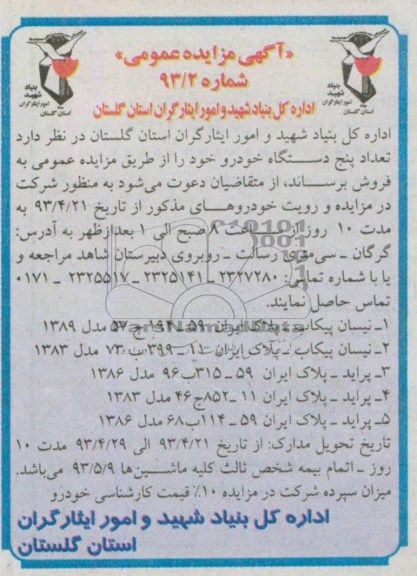 «آگهی مزایده عمومی»
شماره ۹۳/۲
اداره کل بنیاد شهید و امور ایثارگران استان گلستان
بنیاد شهید
امور ایثارگران
استان گلستان
بنیاد شهید
امور ایثارگران
استان گلستان
اداره کل بنیاد شهید و امور ایثارگران استان گلستان در نظر دارد
تعداد پنج دستگاه خودرو خود را از طریق مزایده عمومی به
فروش برساند، از متقاضیان دعوت می‌شود به منظور شرکت
در مزایده و رویت خودروهای مذکور از تاریخ ۹۳/۴/۲۱ به
مدت ۱۰ روز از ساعت ۸ صبح الی ۱ بعدازظهر به آدرس:
گرگان ـ سی‌متری رسالت ـ روبروی دبیرستان شاهد مراجعه و
یا با شماره تماس: ۲۳۲۷۲۸۰ ـ ۲۳۲۵۱۴۱ ـ ۲۳۲۵۵۱۷ ـ ۰۱۷۱
تماس حاصل نمایند.
۱ـ نیسان پیکاپ ـ پلاک ایران ۵۹ ـ ۱۹۴ج۵۷ مدل ۱۳۸۹
۲ـ نیسان پیکاپ ـ پلاک ایران ۱۱ ـ ۳۹۹ب۷۳ مدل ۱۳۸۳
۳ـ پراید ـ پلاک ایران ۵۹ ـ ۳۱۵ب۹۶ مدل ۱۳۸۶
۴ـ پراید ـ پلاک ایران ۱۱ ـ ۸۵۲ج۴۶ مدل ۱۳۸۳
۵ـ پراید ـ پلاک ایران ۵۹ ـ ۱۱۴ب۶۸ مدل ۱۳۸۶
تاریخ تحویل مدارک: از تاریخ ۹۳/۴/۲۱ الی ۹۳/۴/۲۹ مدت ۱۰
روز ـ اتمام بیمه شخص ثالث کلیه ماشین‌ها ۹۳/۵/۹ می‌باشد.
میزان سپرده شرکت در مزایده ۱۰٪ قیمت کارشناسی خودرو
اداره کل بنیاد شهید و امور ایثارگران
استان گلستان